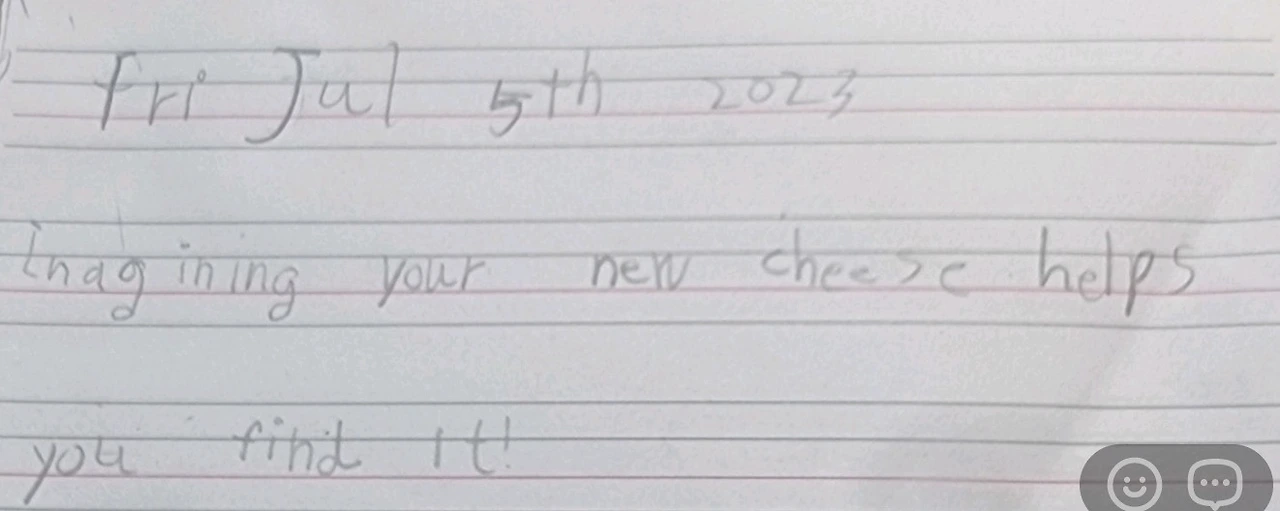 Fri Jul 5th 2023
Inagining your new cheese helps
you find it!